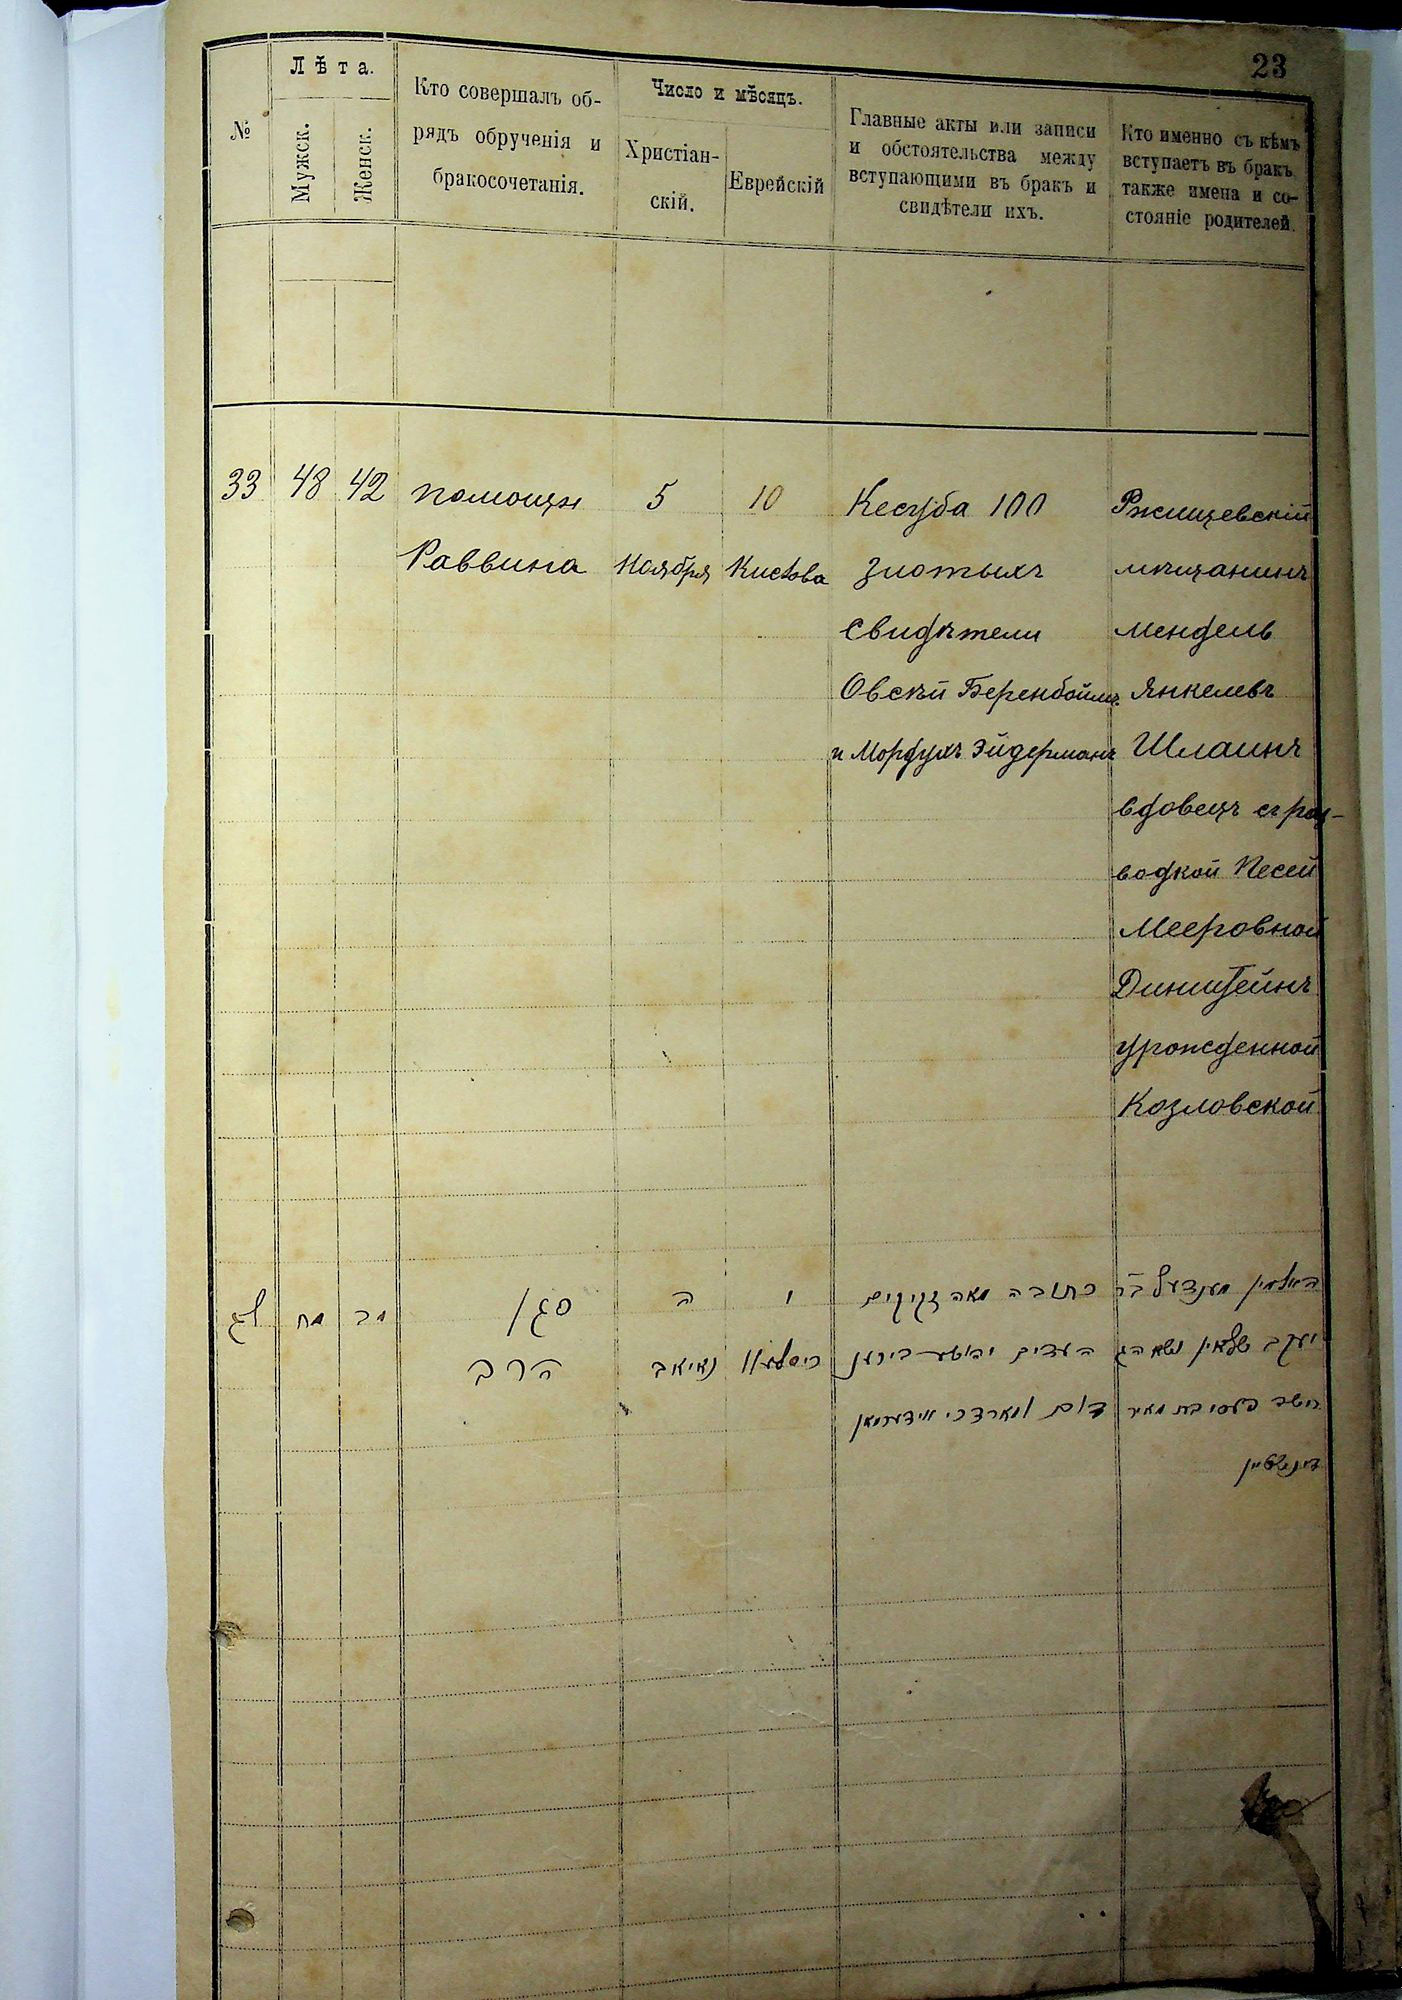 23
№
Лѣта.
Мужск.
Женск.
Кто совершалъ об-
рядъ обрученія и
бракосочетанія.
Число и мѣсяцъ.
Христіан-
скій.
Еврейскій
Главные акты или записи
и обстоятельства между
вступающими въ бракъ и
свидѣтели ихъ.
Кто именно съ кѣмъ
вступаетъ въ бракъ
также имена и со-
стояніе родителей.
33
48
42
помощн
Раввина
5
Ноября
10
Кислова
Кесуба 100
Злотыхъ
Свидѣтели
Овсѣй Беренбоймъ
и Мордухъ Эйдерманъ
Ржищевскій
мѣщанинъ
Мендель
Янкелевъ
Шлаинъ
вдовецъ съ раз-
водкой Песей
Мееровной
Динштейнъ
урожденной
Козловской
לג
מח
מב
סגן
הרב
ה
נאיאב
י
כיסלעוו
כתובה מאה זקוקים
העדים יהושע בירען
בוים ומארדכי איידערמאן
האלמין מענדעל ב״ר
יעקב שלאין נשא הג
פעסי בת מאיר
דינשטיין